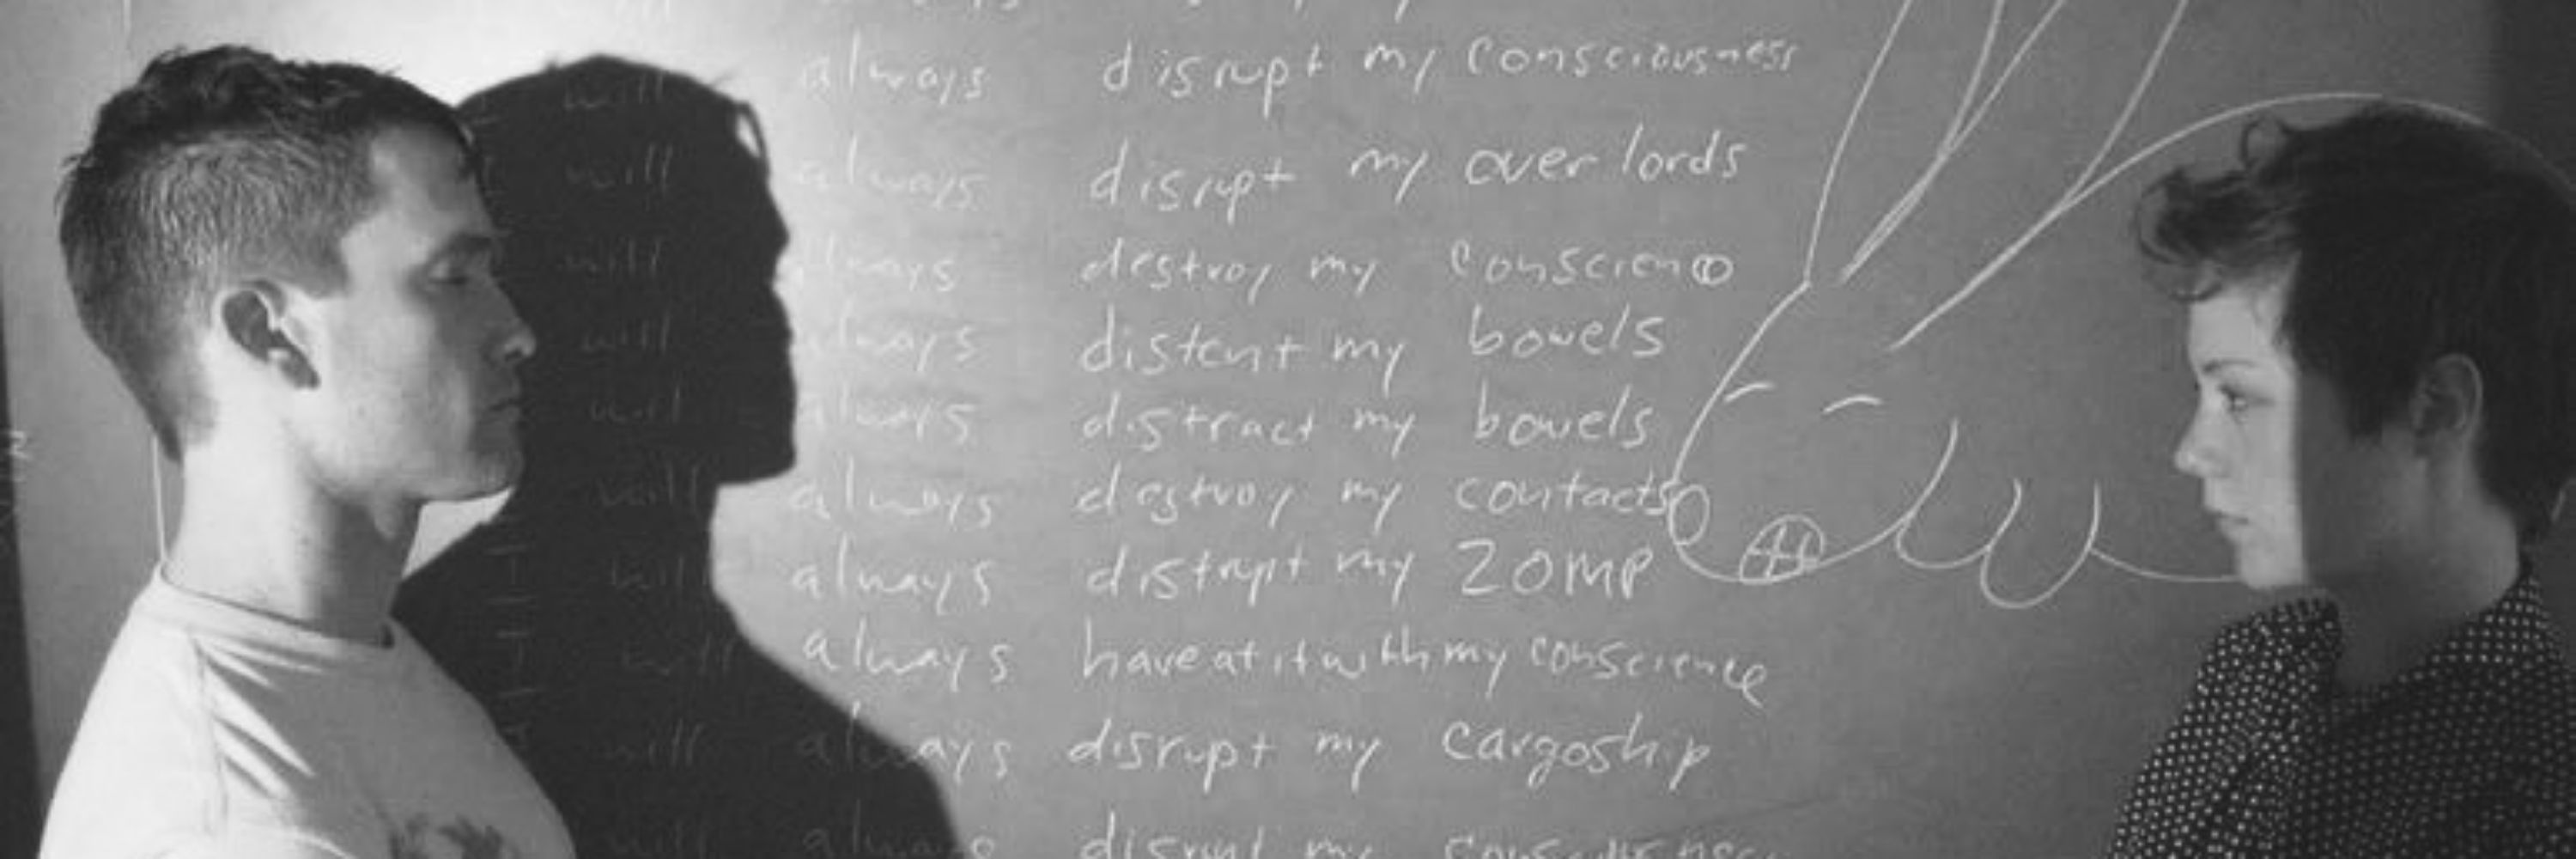 will always disrupt my consciousness
will always disrupt my over lords
will always destroy my conscience
will always distent my bowels
will always distract my bowels
will always destroy my contacts
will always distrupt my ZOMP
will always have at it with my conscience
will always disrupt my cargoship
will always disrupt my consciousness